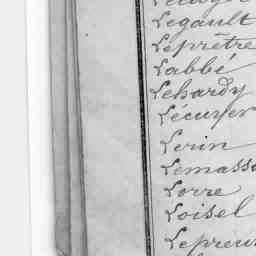 Legault
Leprêtre
Labbé
Lehardy
Lécuyer
Lerin
Lemasso
Lorre
Loisel
Lepreu